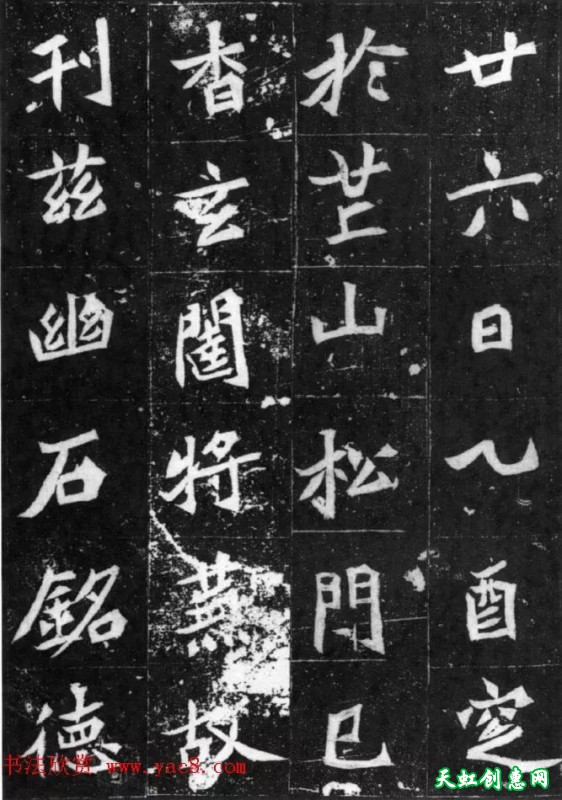 廿六日乙酉窆
於芒山松門已
杳玄闥將蕪故
刊茲幽石銘德
书法欣赏 www.yac8.com
天虹创惠网